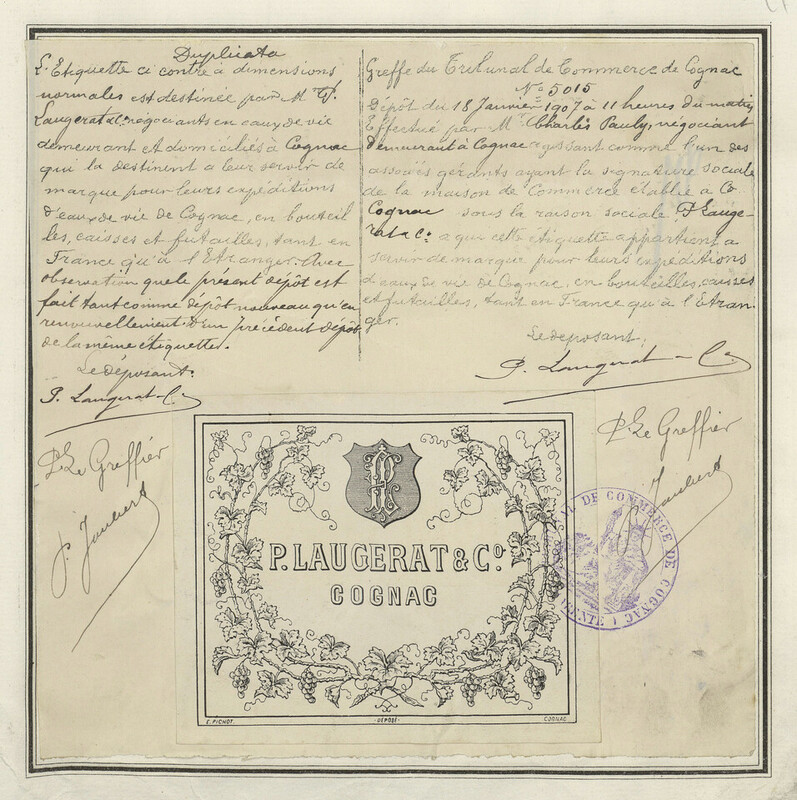 Duplicata
L'Etiquette ci contre à dimensions
normales est destinée par M. P.
Laugerat & Co. négociants en eaux de vie
demeurant et domiciliés à Cognac
qui la destinent a leur servir de
marque pour leurs expéditions
d'eaux de vie de Cognac, en bouteil
les, caisses et futailles, tant en
France qu'à l'Etranger. Avec
observation que le présent dépôt est
fait tant comme dépôt nouveau qu'en
renouvellement d'un précédent dépôt
de la même étiquette.
Le déposant.
P. Laugerat & Co
Greffe du Tribunal de Commerce de Cognac
No 5015
Dépôt du 18 Janvier 1907 à 11 heures du matin
Effectué par Mr. Charles Pauly, négociant
demeurant à Cognac agissant comme l'un des
associés gérants ayant la signature sociale
de la maison de Commerce établie à Co
Cognac sous la raison sociale P. Lauge-
rat & Co. a qui cette étiquette appartient a
servir de marque pour leurs expéditions
d'eaux de vie de Cognac, en bouteilles, caisses
et futailles, tant en France qu'à l'Etran-
ger.
Le déposant,
P. Laugerat & Co
Pr Le Greffier
P. Jaubert
Pr Le Greffier
P. Jaubert
P. LAUGERAT & Co.
COGNAC
DÉPOSÉ
COGNAC
DE COMMERCE DE COGNAC